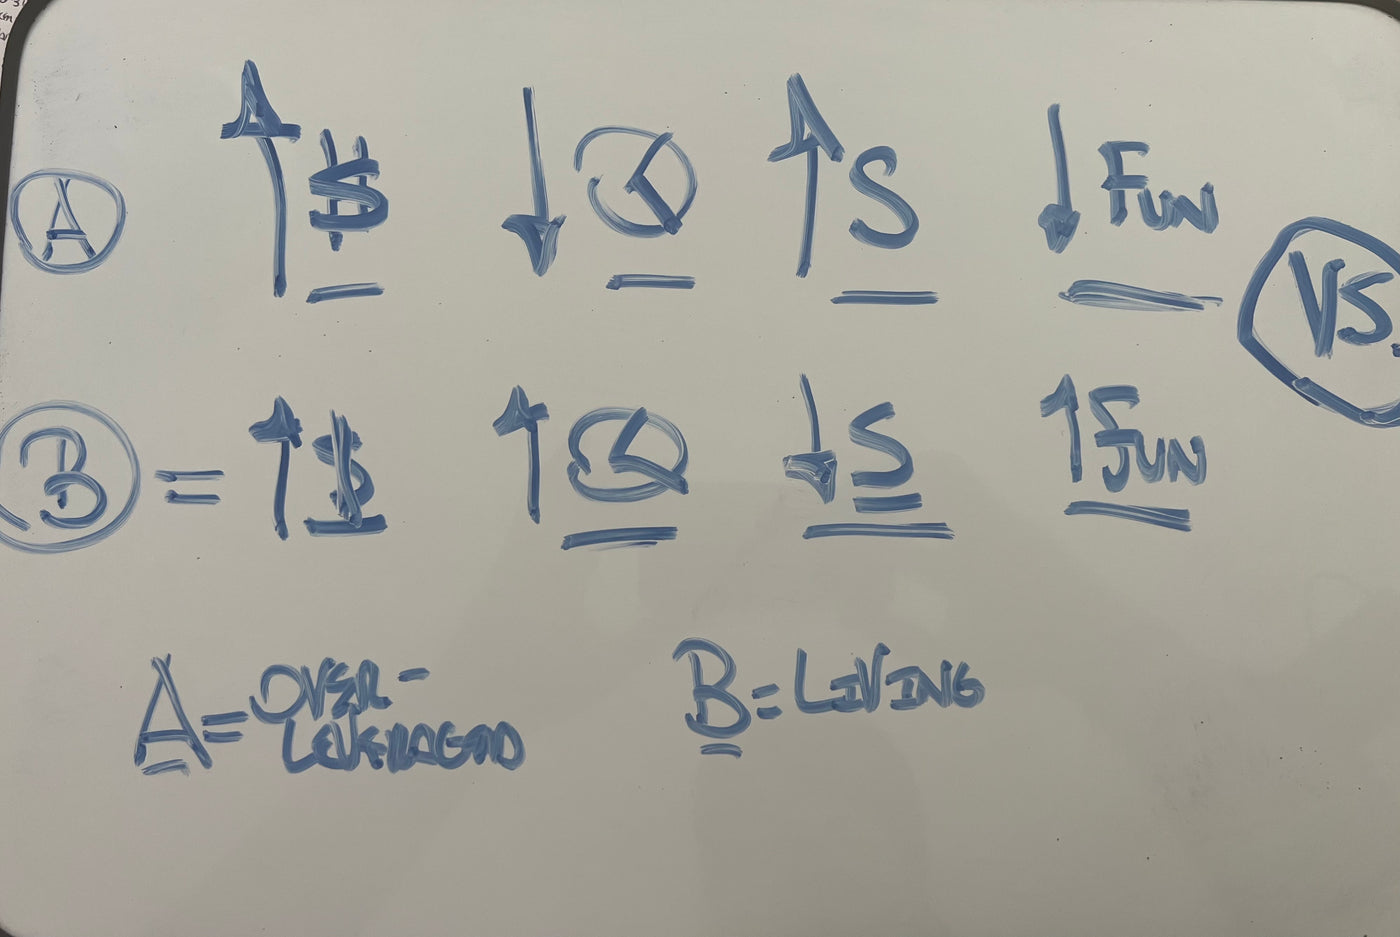 A ↑ $ ↓ ↑ S ↓ FUN
VS.
B = ↑ $ ↑ ↓ S ↑ FUN
A = OVER-
LEVERAGED
B = LIVING